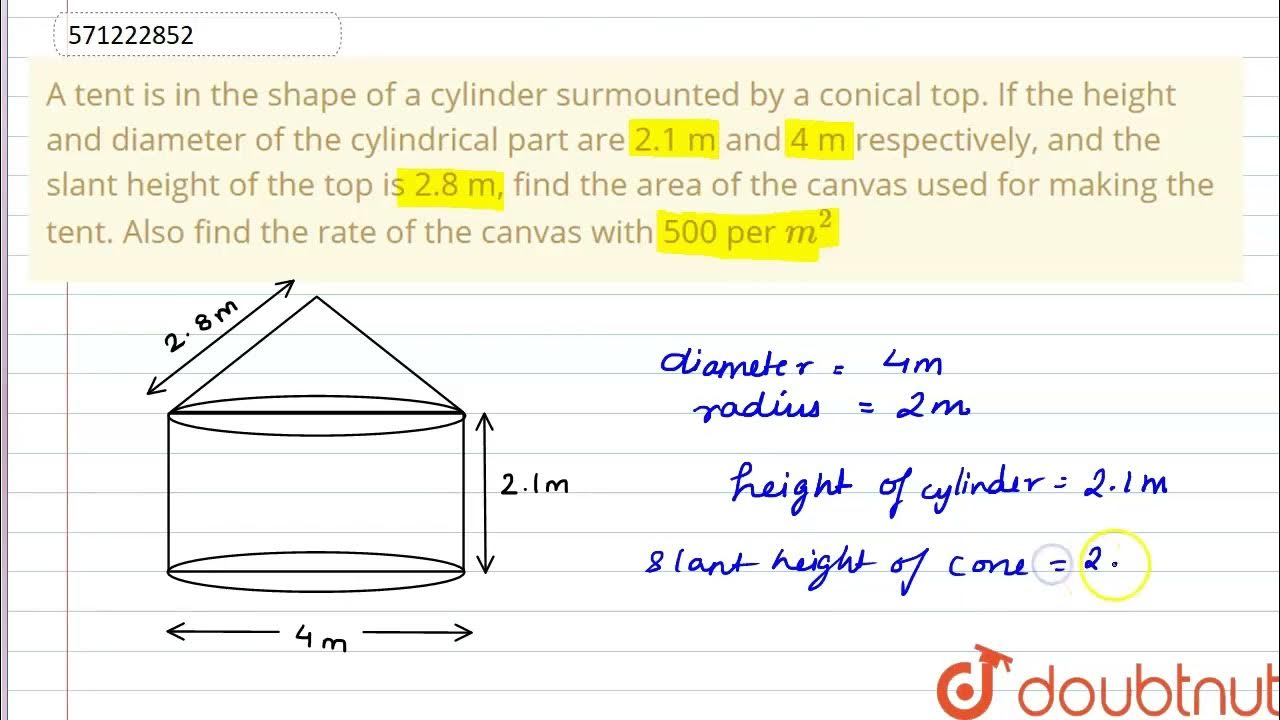 571222852
A tent is in the shape of a cylinder surmounted by a conical top. If the height
and diameter of the cylindrical part are 2.1 m and 4 m respectively, and the
slant height of the top is 2.8 m, find the area of the canvas used for making the
tent. Also find the rate of the canvas with 500 per m²
2.8m
2.1m
4m
diameter = 4m
radius = 2m
height of cylinder = 2.1m
slant height of cone = 2.
doubtnut